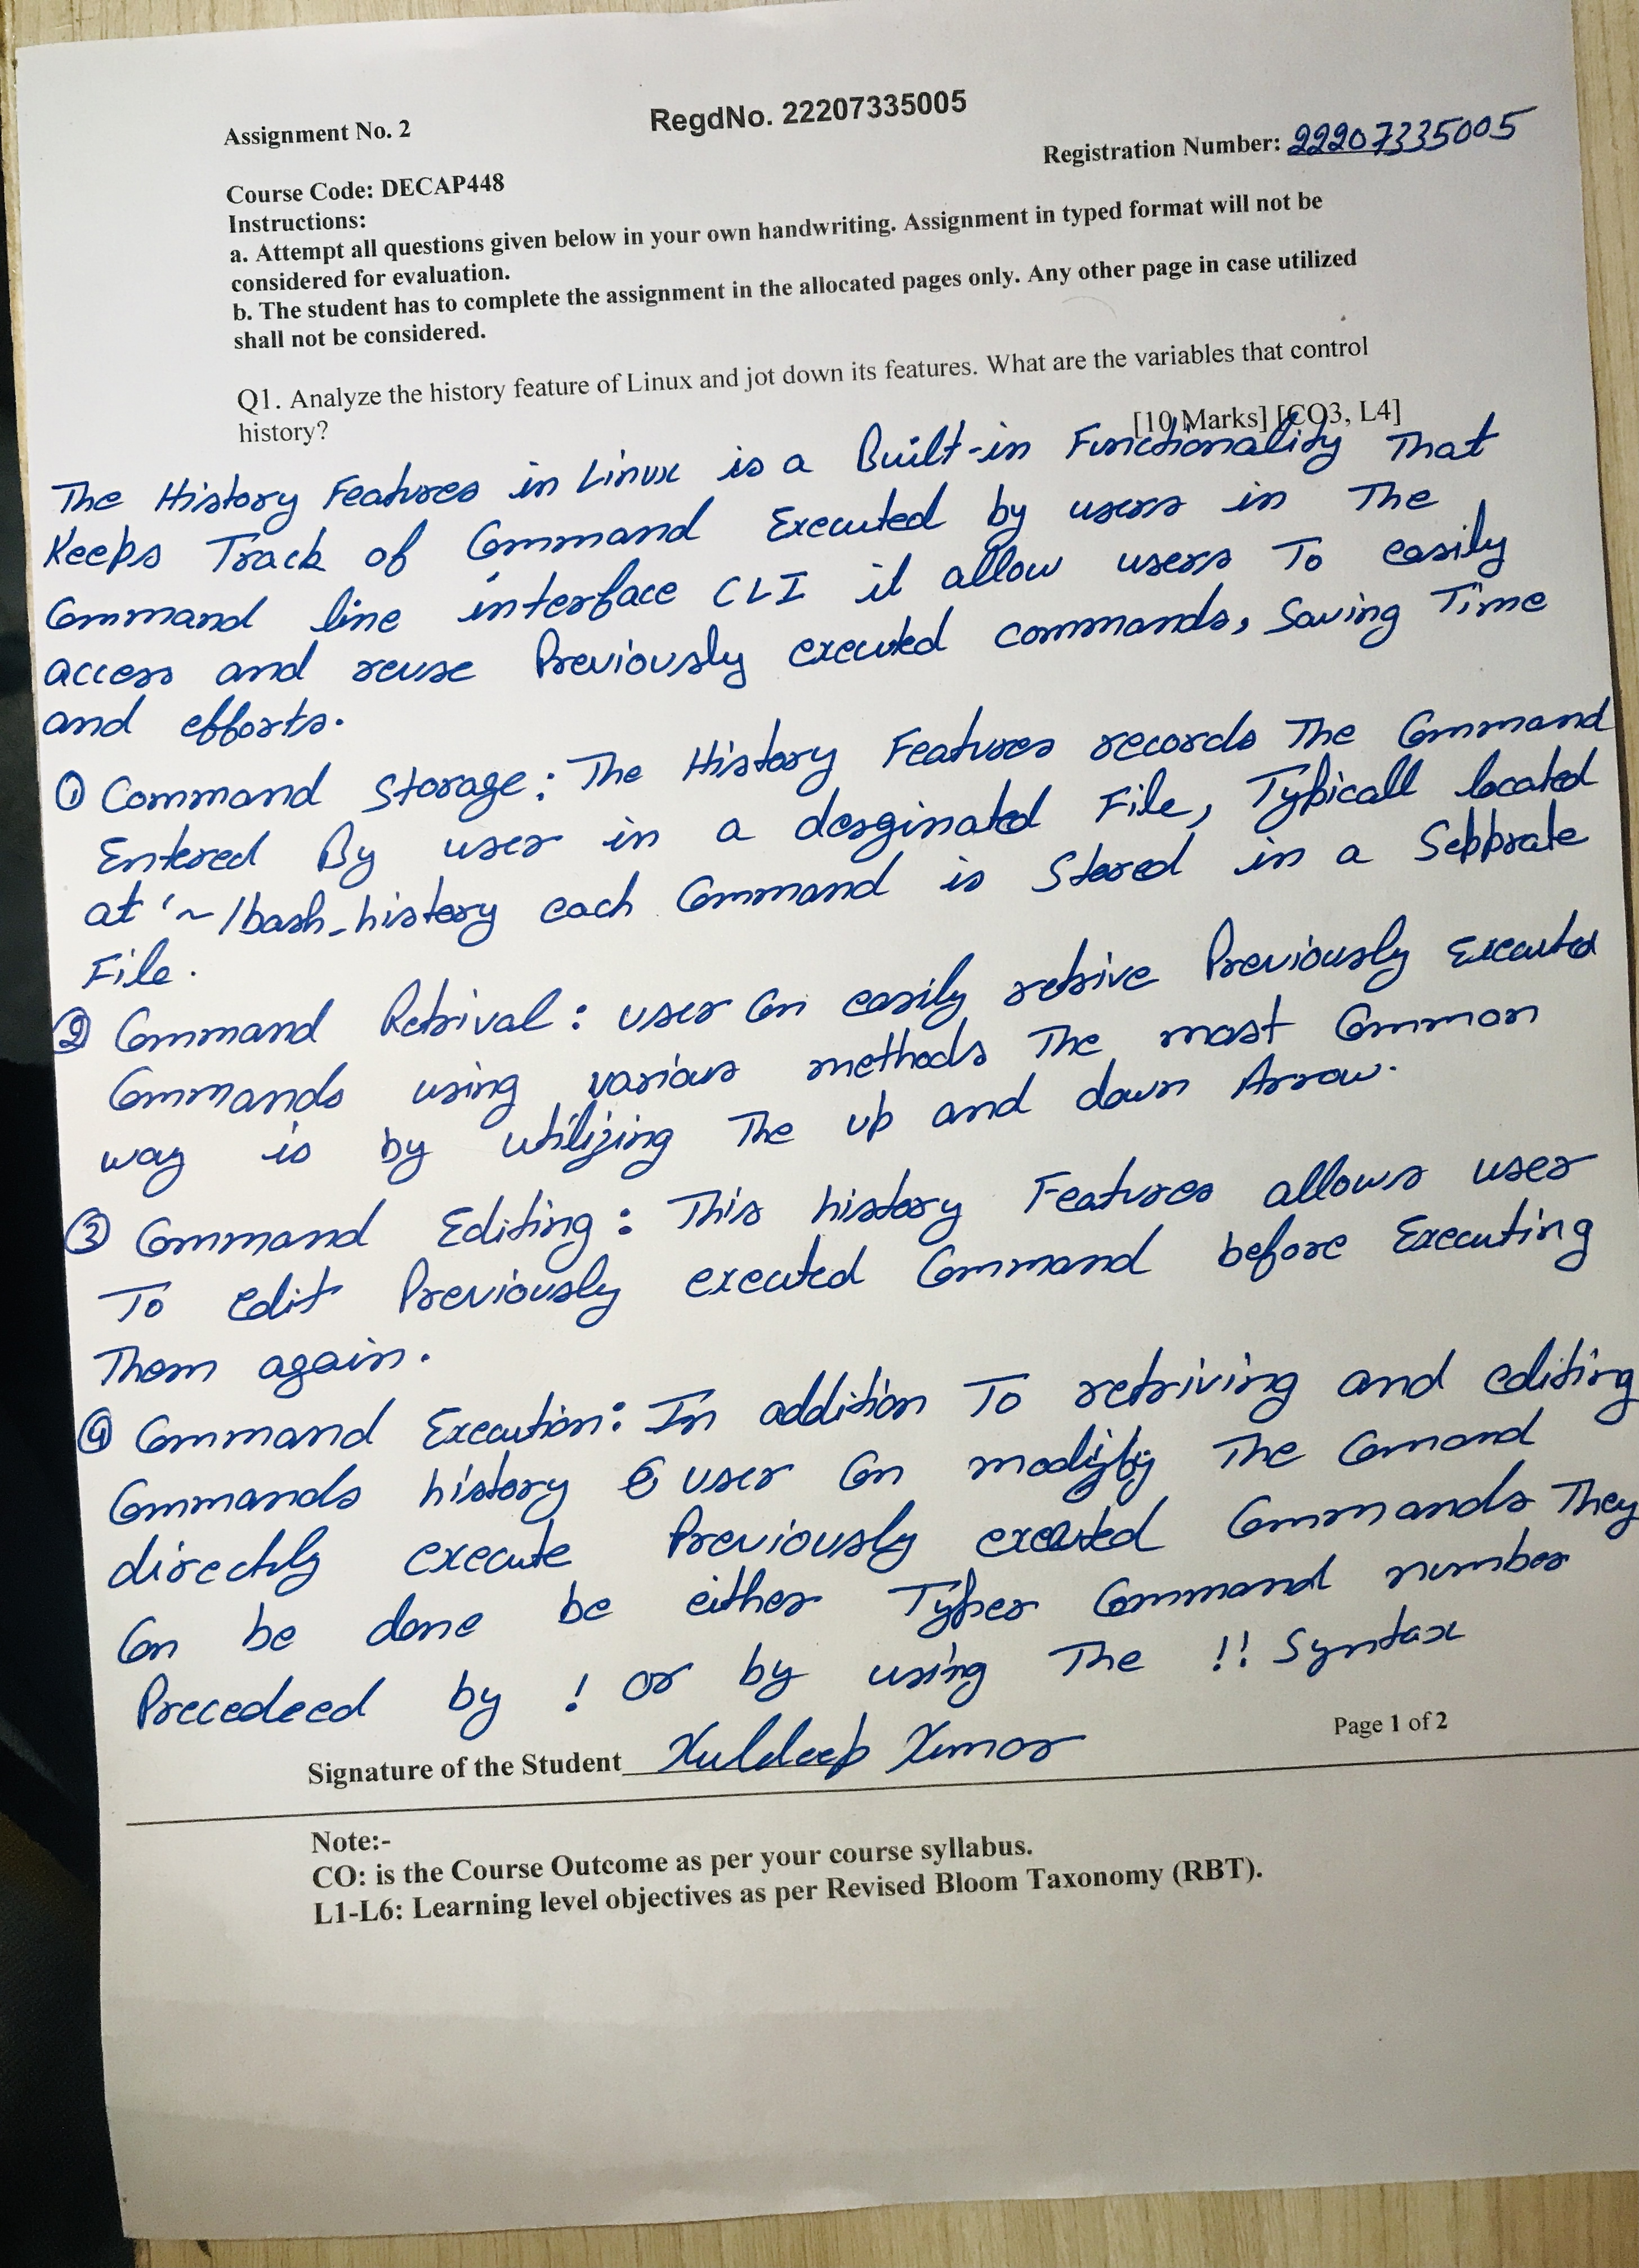 Assignment No. 2
RegdNo. 22207335005
Registration Number: 22207335005
Course Code: DECAP448
Instructions:
a. Attempt all questions given below in your own handwriting. Assignment in typed format will not be
considered for evaluation.
b. The student has to complete the assignment in the allocated pages only. Any other page in case utilized
shall not be considered.
Q1. Analyze the history feature of Linux and jot down its features. What are the variables that control
history?
[10 Marks] [CO3, L4]
The History Features in Linux is a Built-in Functionality That
Keeps Track of Command Executed by users in The
Command line interface CLI it allow users To easily
access and reuse Previously executed commands, Saving Time
and efforts.
① Command Storage: The History Features records The Command
Entered By user in a desginated File, Typicall located
at '~/bash_history each Command is Stored in a Sepprate
File.
② Command Retrival: user Can easily retrive Previously Executed
Commands using various methods The most Common
way is by utilizing The up and down Arrow.
③ Command Editing: This history Features allows user
To edit Previously executed Command before Executing
Them again.
④ Command Execution: In addition To retriving and editing
Commands history user Can modify The Comand
directly execute Previously executed Commands They
Can be done be either Types Command number
Precedeed by ! or by using The !! Syntax
Page 1 of 2
Signature of the Student Kuldeep Kumar
Note:-
CO: is the Course Outcome as per your course syllabus.
L1-L6: Learning level objectives as per Revised Bloom Taxonomy (RBT).